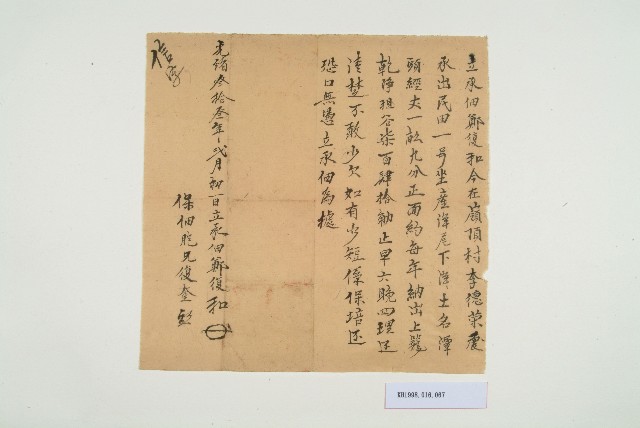 立承佃鄭復和今在嶺頂村李德榮處
承出民田一号坐産洋尾下洋土名潭
頭經丈一畝九分正面約每年納出上籠
乾淨租谷柒百肆拾觔正早六晚四理还
清楚不敢少欠如有少短係保培还
恐口無憑立承佃為據
光緒叁拾叁年弍月初一日立承佃鄭復和
保佃胞兄復奎
KH1998.516.067